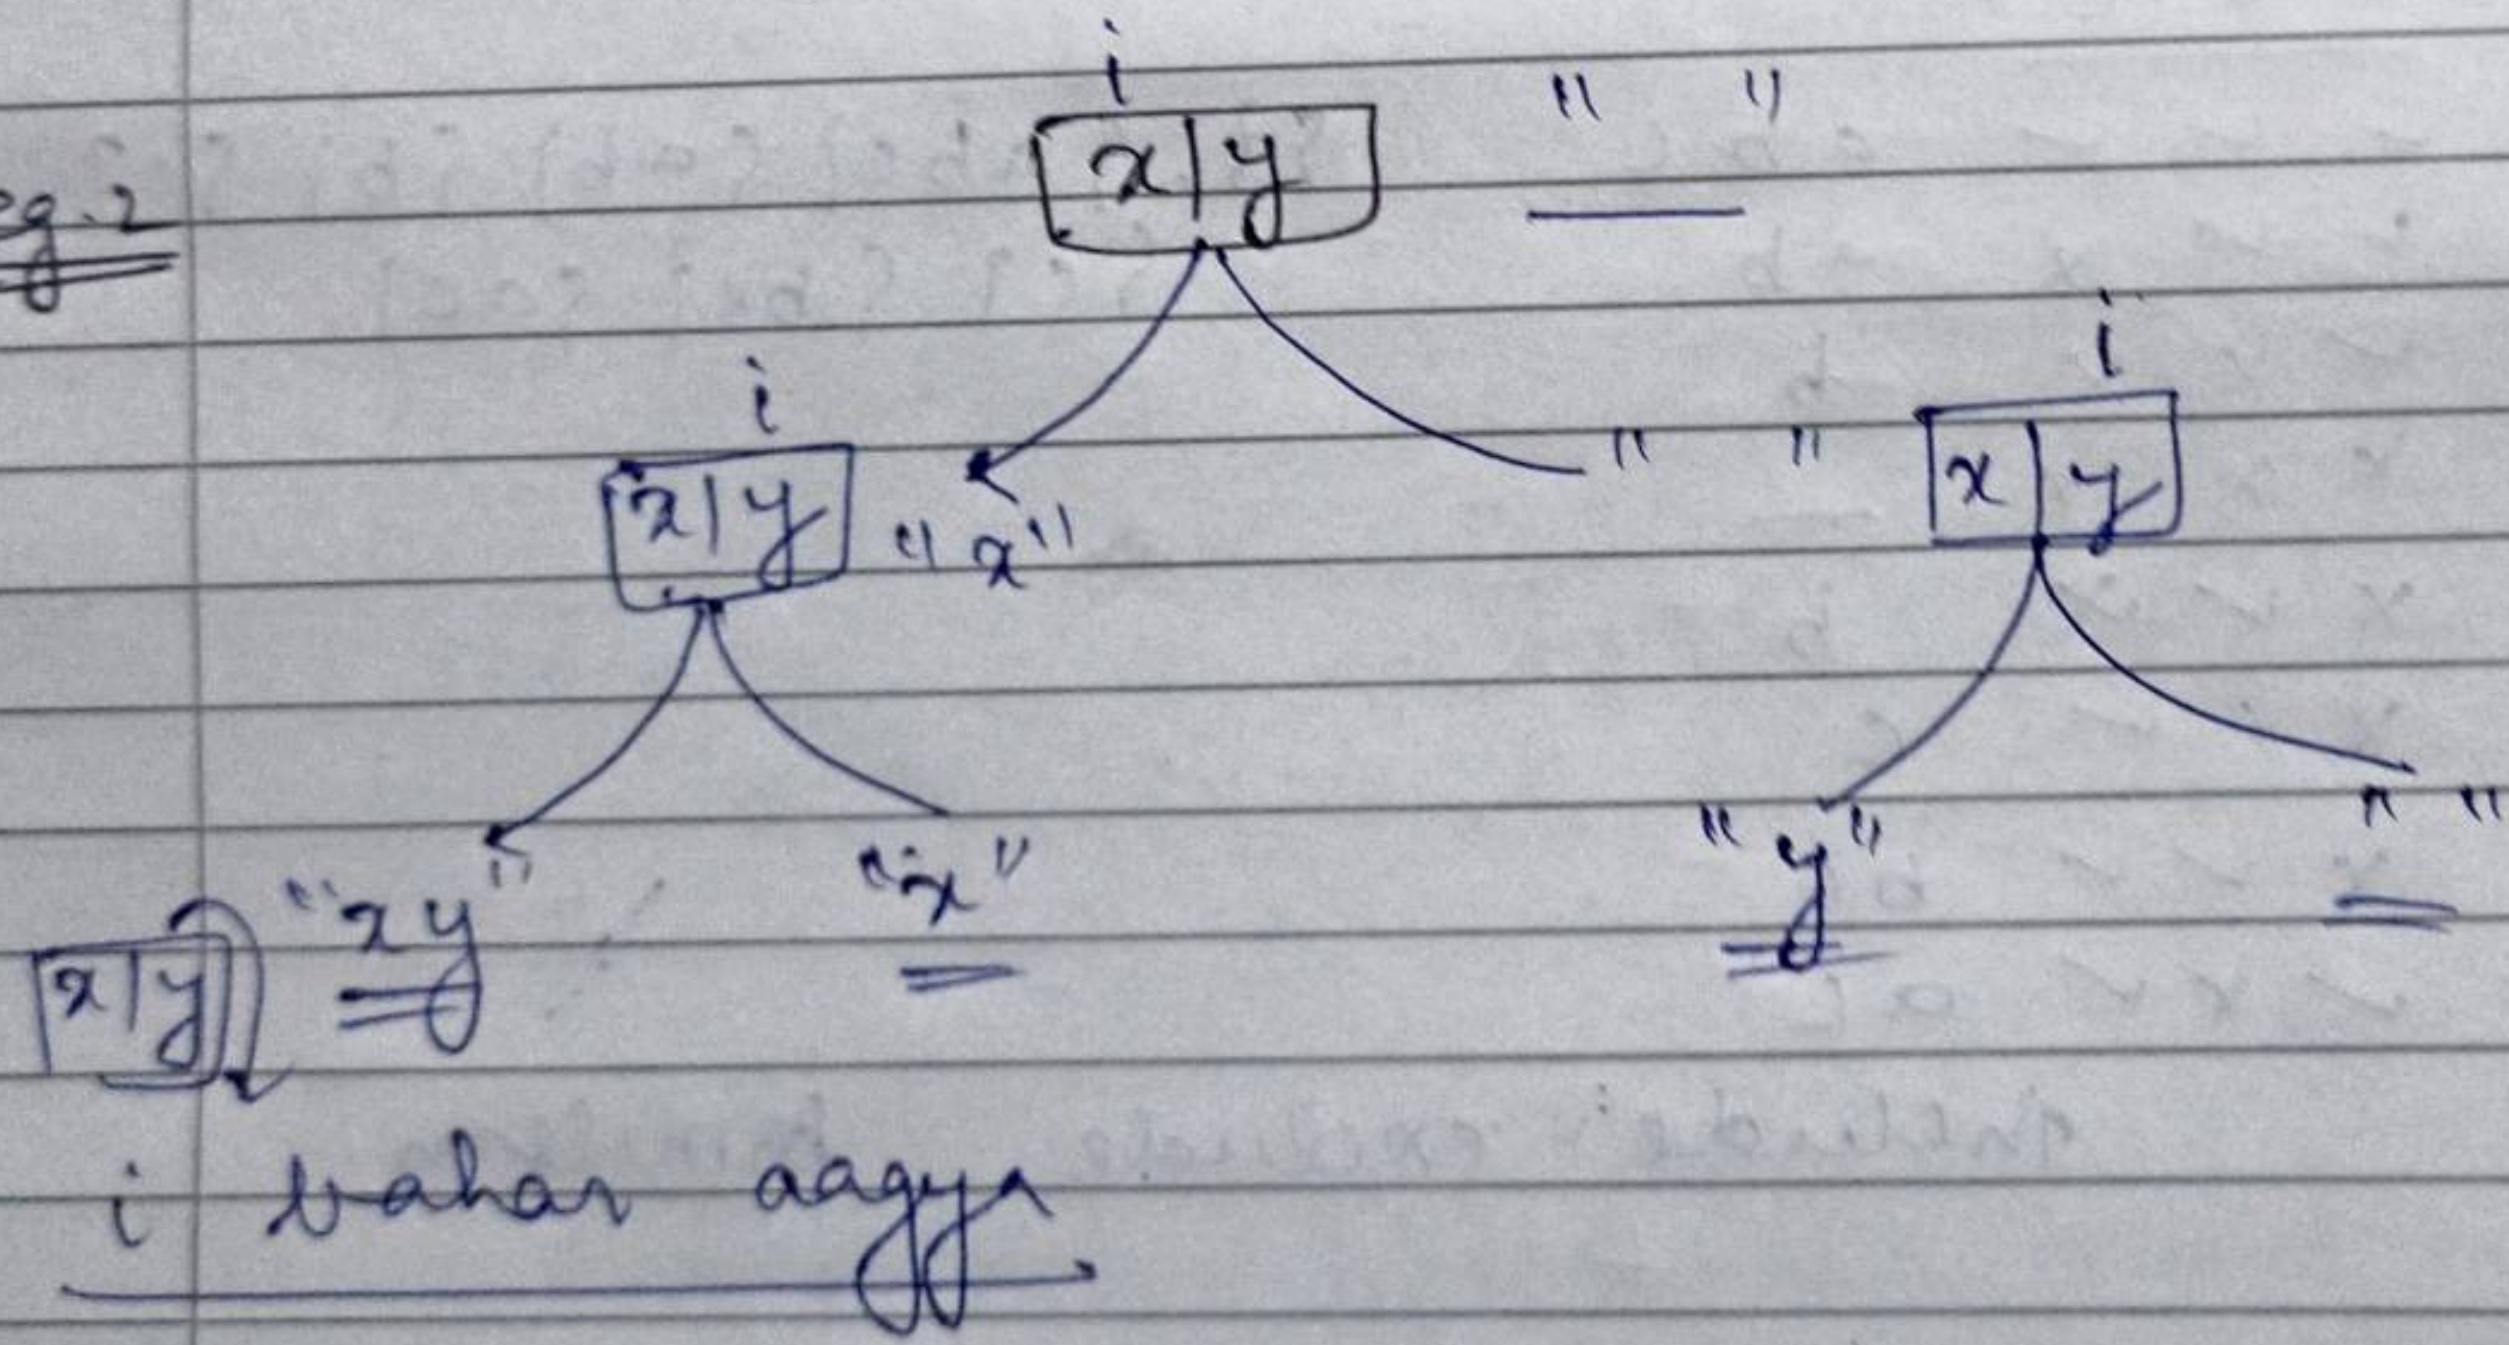 i
x | y " "
eg.2
i
i
x | y "x"
" " x | y
"xy" "x" "y" " "
x | y
i bahar aagya